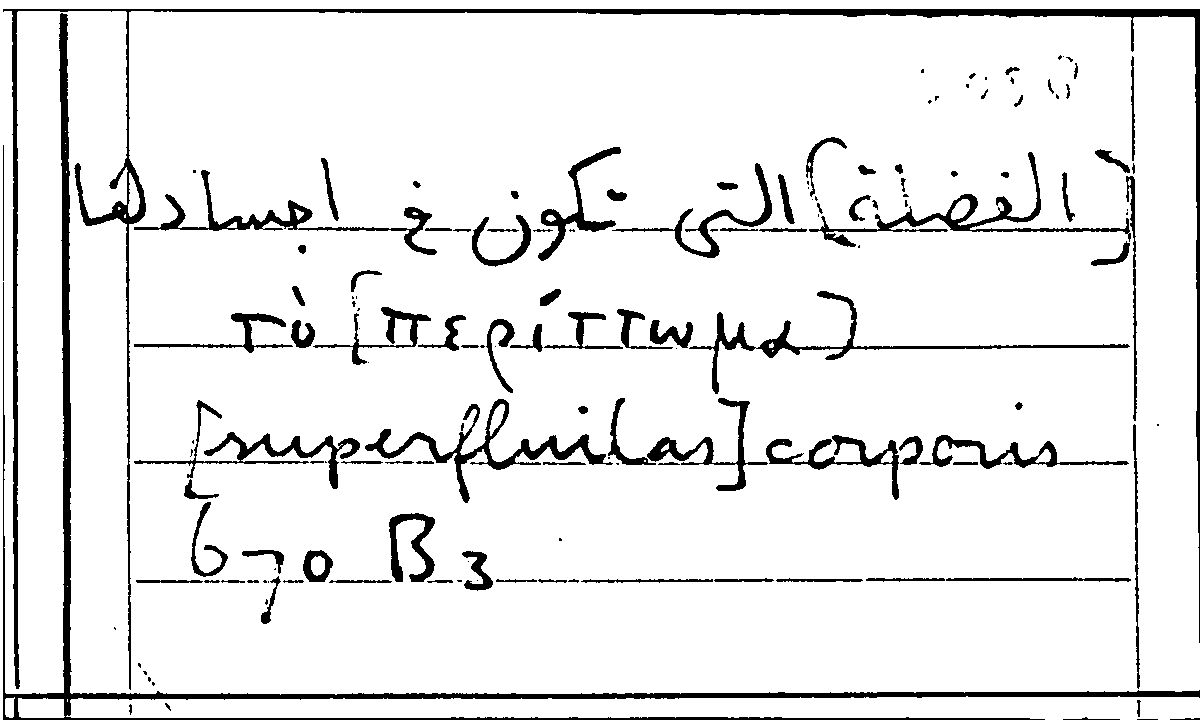 [الفضلة] التى تكون فى اجسادها
τὸ [περίττωμα]
[superfluitas] corporis
670 B 3